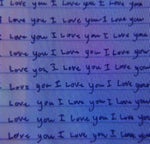 I Love you I Love you I Love you
I Love you I Love you I Love you
I Love you I Love you I Love you
I Love you I Love you I Love you
Love you I Love you I Love you
Love you I Love you I Love your
Love you I Love you I Love you
Love you I Love you I Love you
Love you I Love you I Love you